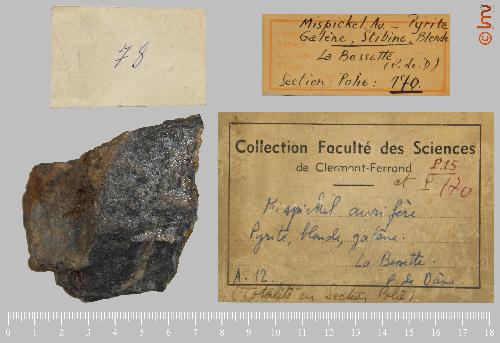 78
Mispickel. Au - Pyrite
Galène, Stibine, Blende
La Bessette
(P. de. D)
Section Polie: 170.
Collection Faculté des Sciences
de Clermont-Ferrand
P.15
et P. 170
Mispickel aurifère
Pyrite, blende, galène.
La Bessette.
A. 12.
P. de Dôme
(Totalité en Section Polie)
0 1 2 3 4 5 6 7 8 9 10 11 12 13 14 15 16 17 18